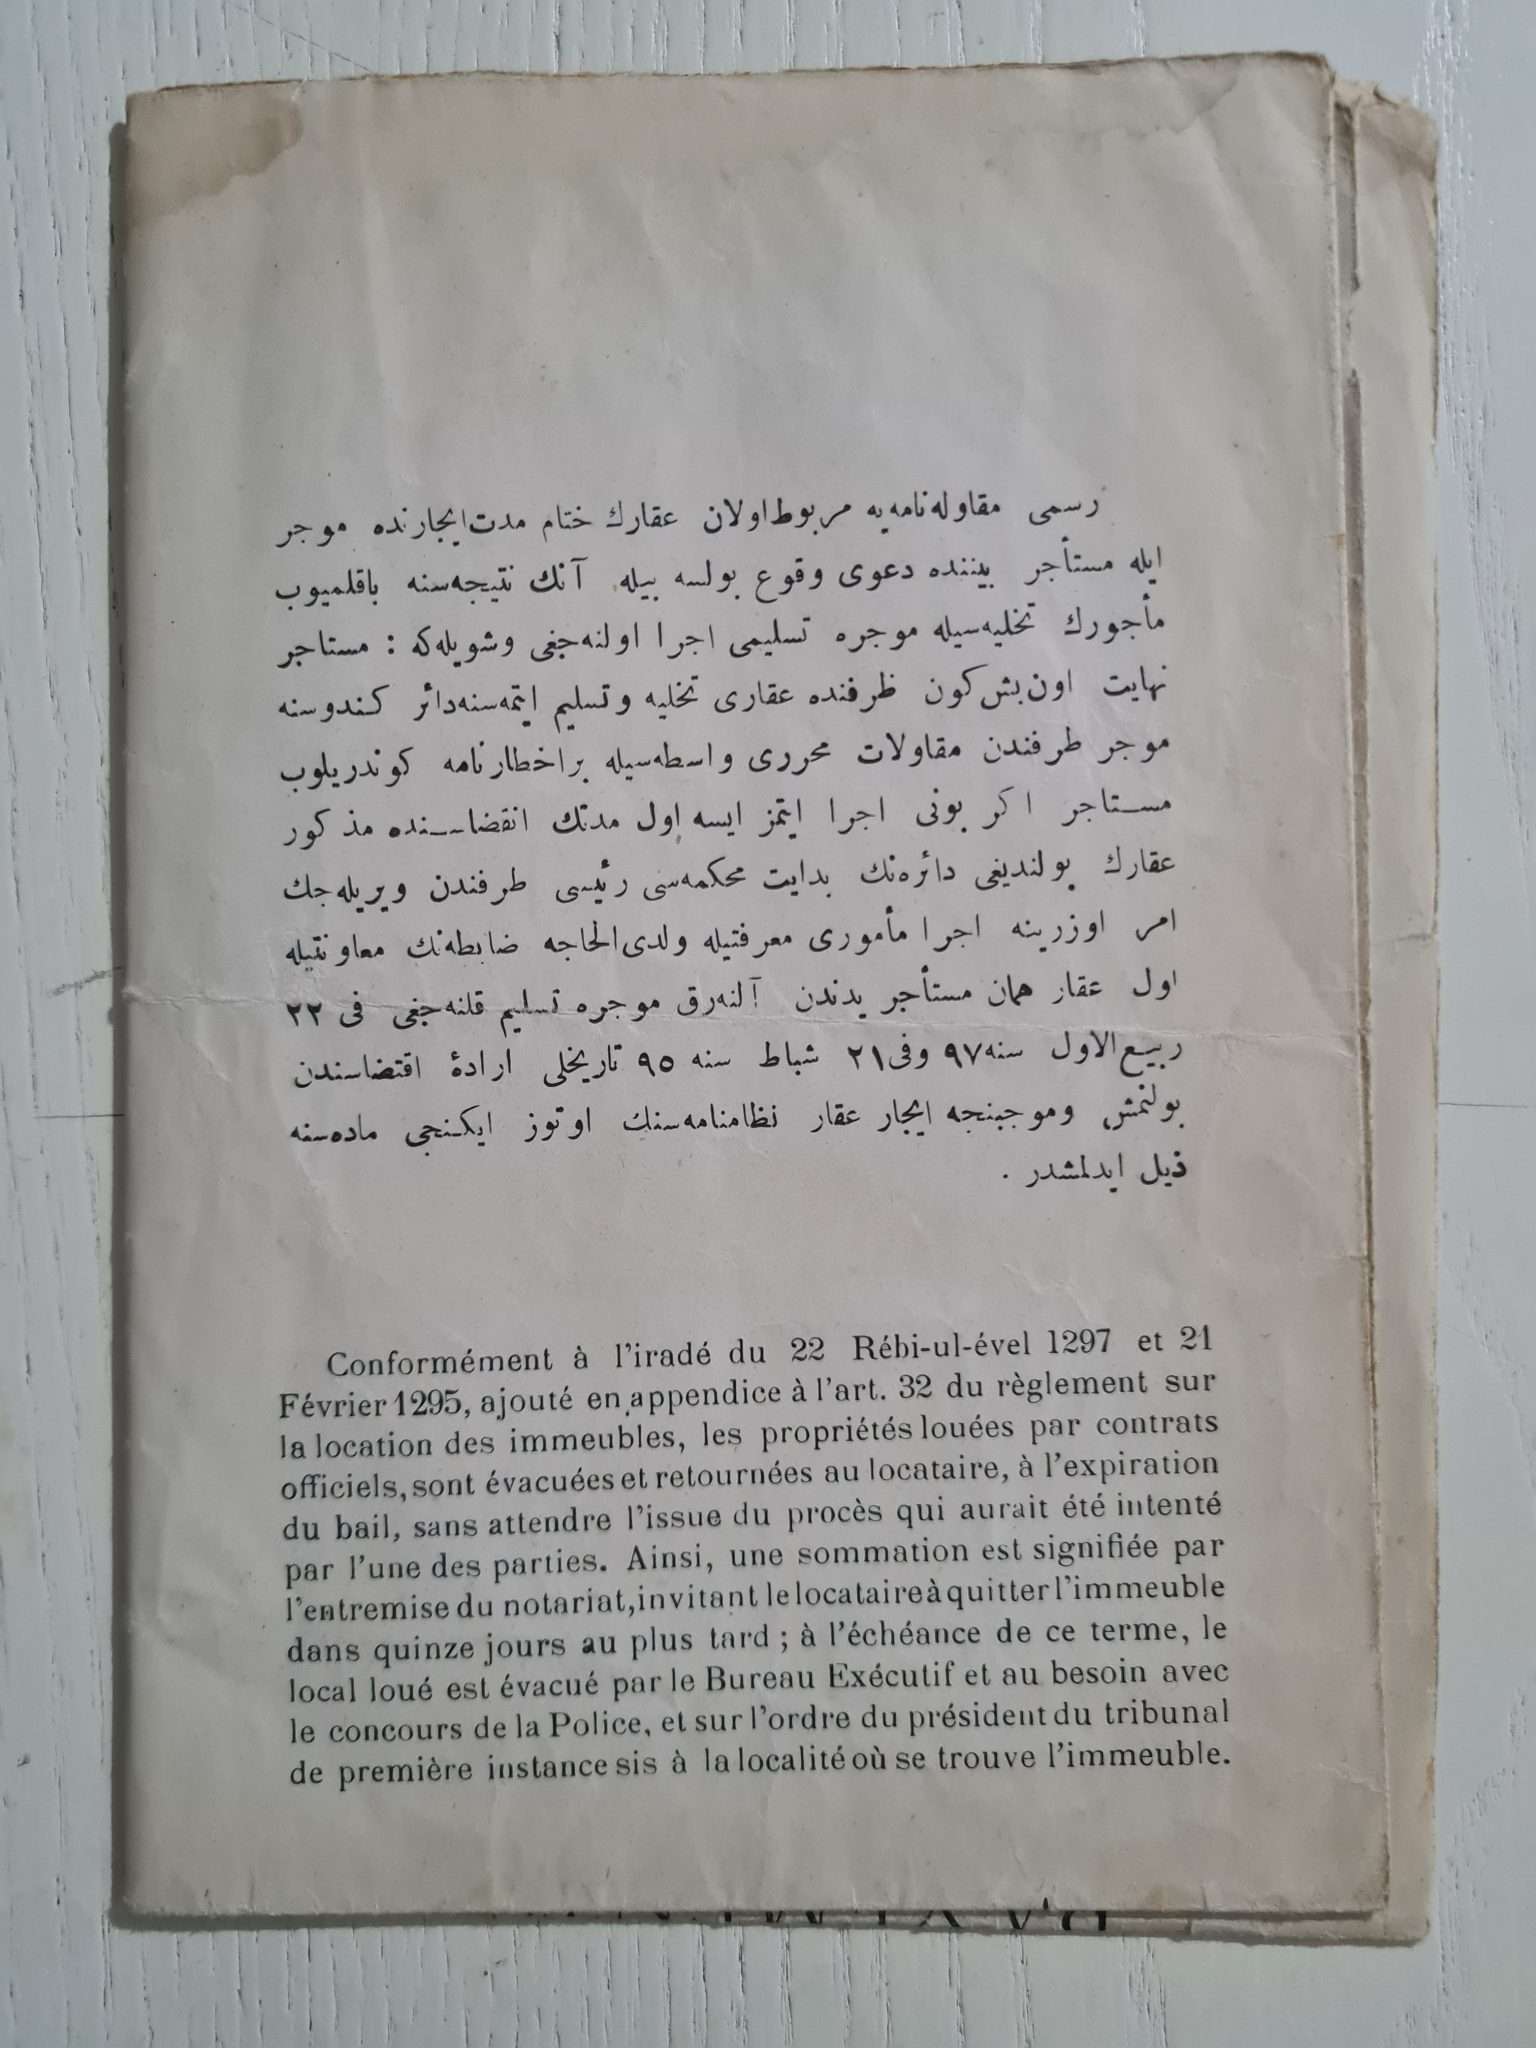 رسمی مقاوله‌نامه‌یه مربوط اولان عقارك ختام مدت ایجارنده موجر
ایله مستأجر بیننده دعوی وقوع بولسه بیله آنك نتیجه‌سنه باقلمیوب
مأجورك تخلیه‌سیله موجره تسلیمی اجرا اولنه‌جغی وشویله‌که : مستاجر
نهایت اون بش کون ظرفنده عقاری تخلیه وتسلیم ایتمه‌سنه‌دائر کندوسنه
موجر طرفندن مقاولات محرری واسطه‌سیله براخطارنامه کوندریلوب
مستاجر اکر بونی اجرا ایتمز ایسه اول مدتك انقضاسنده مذکور
عقارك بولندیغی دائره‌نك بدایت محکمه‌سی رئیسی طرفندن ویریله‌جك
امر اوزرینه اجرا مأموری معرفتیله ولدی‌الحاجه ضابطه‌نك معاونتیله
اول عقار همان مستأجر یدندن آلنه‌رق موجره تسلیم قلنه‌جغی فی ٢٢
ربیع‌الاول سنه ٩٧ وفی ٢١ شباط سنه ٩٥ تاریخلی ارادۀ اقتضاسندن
بولنمش وموجبنجه ایجار عقار نظامنامه‌سنك اوتوز ایکنجی ماده‌سنه
ذیل ایدلمشدر .
Conformément à l'iradé du 22 Rébi-ul-ével 1297 et 21
Février 1295, ajouté en appendice à l'art. 32 du règlement sur
la location des immeubles, les propriétés louées par contrats
officiels, sont évacuées et retournées au locataire, à l'expiration
du bail, sans attendre l'issue du procès qui aurait été intenté
par l'une des parties. Ainsi, une sommation est signifiée par
l'entremise du notariat, invitant le locataire à quitter l'immeuble
dans quinze jours au plus tard ; à l'échéance de ce terme, le
local loué est évacué par le Bureau Exécutif et au besoin avec
le concours de la Police, et sur l'ordre du président du tribunal
de première instance sis à la localité où se trouve l'immeuble.